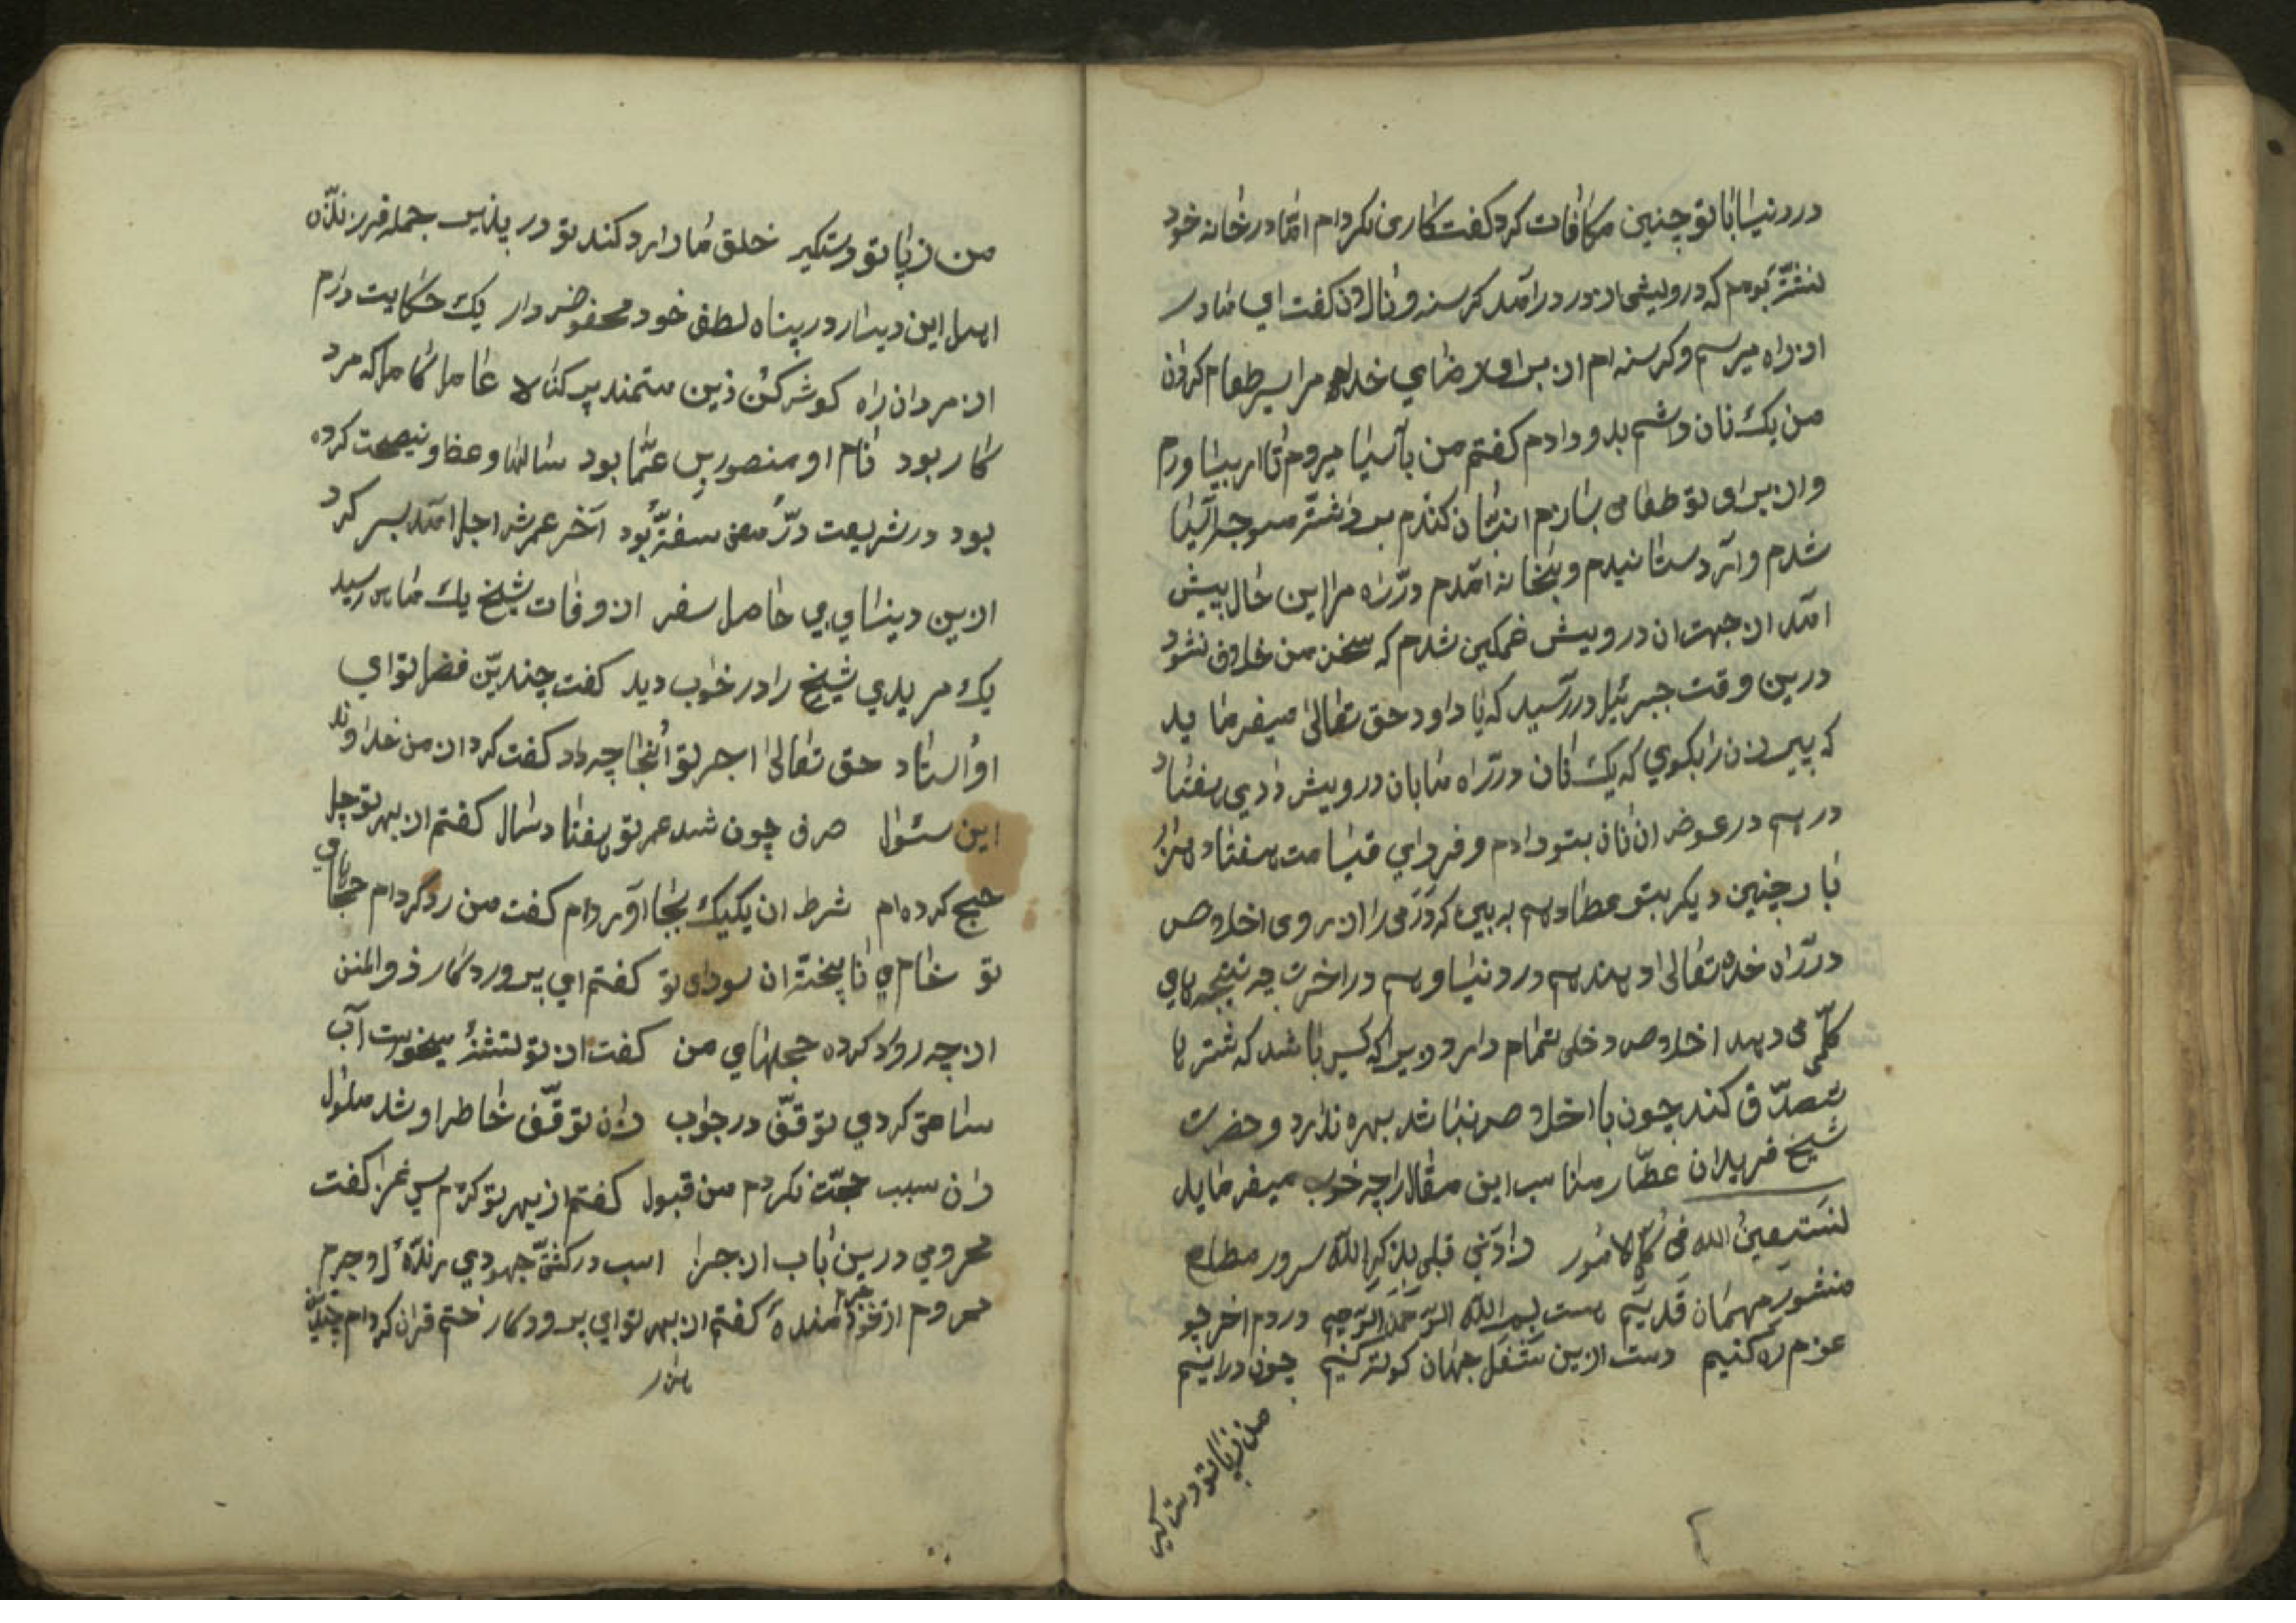 در دنیا با تو چنین مکافات کرد کفت کاری نکردام امّا در خانه خود
نشتّه بودم که درویشی از در درآمد کرسنه و نالان کفت ای مادر
از راه میرسم و کرسنه ام از برای رضای خدا مرا سیر طعام کردان
من یک نان داشتم بدو دادم کفتم من بآسیا میروم تا ارد بیاورم
و از برای تو طعامی بسازم انبان کندم برداشتّه متوجه آسیا
شدم و آرد ستانیدم و بخانه امدم درّ راه مرا این حال پیش
امد از جهت ان درویش غمکین شدم که سخن من خلاف نشود
درین وقت جبرئیل در رسید که یا داود حق تعالی میفرماید
که پیر زن را بکوی که یک نان درّ راه ما بان درویش دادی هفتاد
درهم در عوض ان نان بتو دادم و فردای قیامت هفتاد هزار
بار چنین دیکر بتو عطا دهم به بین که درمی را از روی اخلاص
درّ راه خدا تعالی دهند هم در دنیا و هم در اخرت چه نتیجه های
کلّی می دهد اخلاص دخلی تمام دارد و هر اکه کس باشد که شتر ها
تصدّق کند چون با اخلاص نباشد بهره ندارد و حضرت
شیخ فریدان عطّار مناسب این مقال را چه خوب میفرماید
نستعین الله فی کلّ الامور وادّنی قبلی بذکر الله سرور مطلع
منشور مهمان قدیم هست بسم الله الرّحمن الرّحیم در دم اخر چو
عزم ره کنیم دست ازین شغل جهان کوته کنیم چون در اییم
من ز پا تو دست کیر
من ز پا تو دستکیر خلق ما را رد کند تو در پذیر جمله فرزندان
اهل این دیار در پناه لطف خود محفوض دار یک حکایت دارم
از مردان راه کوش کن زین ستمند پر کناه عاملا کاملا که مرد
کار بود نام او منصور بن عمّا بود سالها وعظ و نیصحت کرده
بود در شریعت درّ معن سفتّه بود آخر عمرش اجل امد بسر کرد
ازین دینای بی حاصل سفر از وفات شیخ یک ماه رسید
یک مریدی شیخ را در خواب دید کفت چندین فضل تو ای
اوستاد حق تعالی اجر تو آنجا چه داد کفت کرد از من خداوند
این سئوال صرف چون شد عمر تو هفتاد سال کفتم از بهر تو چل
حج کرده ام شرط ان یکیک بجا آوردام کفت من رد کردام حجهای
تو خام و ناپخته ان سودای تو کفتم ای پروردکار ذوالمنن
از چه رو رد کرده حجهای من کفت از تو تشنه میخواست آب
ساعتی کردی توقّف در جواب زان توقّف خاطر او شد ملول
زان سبب حجّت نکردم من قبول کفتم از بهر تو کردم بس غزا کفت
محرومی درین باب از جزا اسب در کشتّه جهودی بنده لا جرم
محروم از غزا منده کفتم از بهر تو ای پروردکار ختم قران کردام چندین
هزار